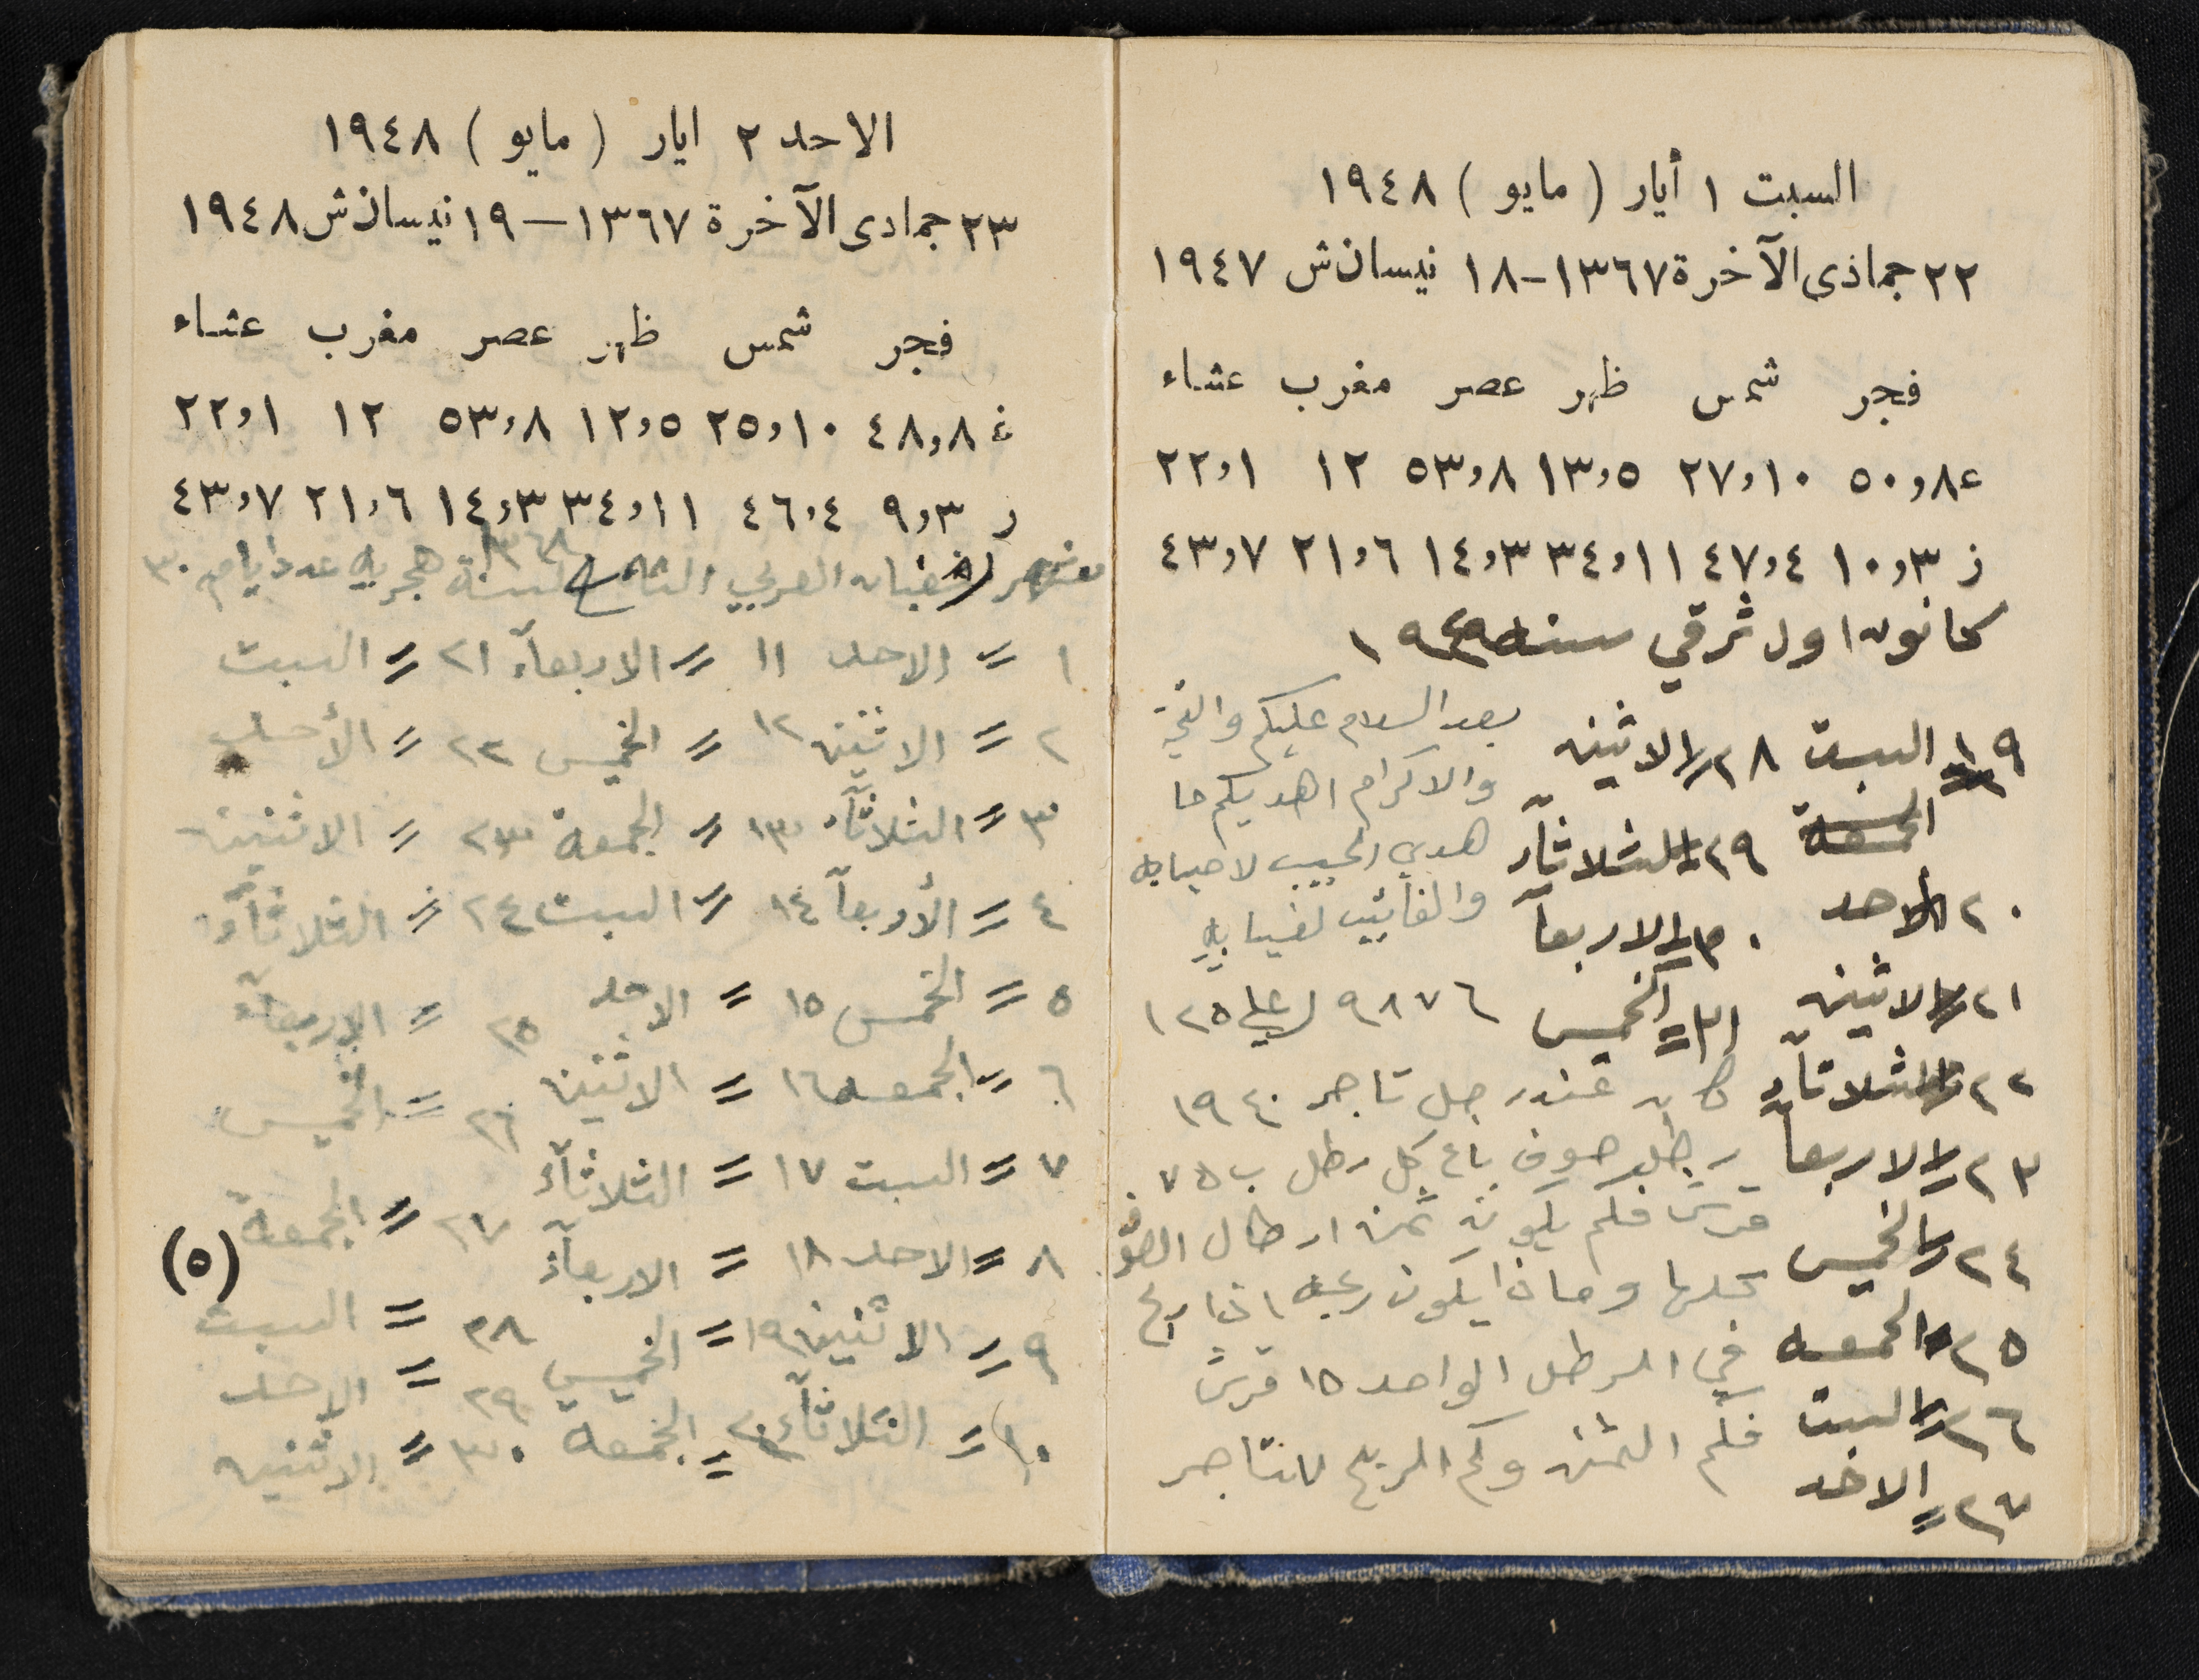 السبت ١ أيار ( مايو ) ١٩٤٨
٢٢ جماذى الآخرة ١٣٦٧ - ١٨ نيسان ش ١٩٤٧
فجر شمس ظهر عصر مغرب عشاء
ع ٨ر٥٠ ١٠ر٢٧ ٥ر١٣ ٨ر٥٣ ١٢ ١ر٢٢
ز ٣ر١٠ ٤ر٤٧ ١١ر٣٤ ٣ر١٤ ٦ر٢١ ٧ر٤٣
كانون اول شرقي سنه ١٩٤٩
١٩ = السبت ٢٨ = الاثنين
الجمعة ٢٩ الثلاثآء
٢٠ الاحد ٣٠ = الاربعآ
٢١ = الاثنين ٣١ = الخميس
٢٢ = الثلاثآء
٢٣ = الاربعآ
٢٤ = الخميس
٢٥ = الجمعه
٢٦ = السبت
٢٧ = الاحد
بعد السلام عليكم والتحية
والاكرام اهديكم ما
هدى الحبيب لاحبابه
والغائيب لغيابه
٩٨٧٦ على ١٢٥
كان عند رجل تاجر ١٩٤٠
رطل صوف باع كل رطل ب ٧٥
قرش فكم يكون ثمن ارطال الصوف
كلها وماذا يكون ربحه اذا ربح
في الرطل الواحد ١٥ قرش
فكم الثمن وكم الربح للتاجر
الاحد ٢ ايار ( مايو ) ١٩٤٨
٢٣ جمادى الآخرة ١٣٦٧ — ١٩ نيسان ش ١٩٤٨
فجر شمس ظهر عصر مغرب عشاء
غ ٨ر٤٨ ١٠ر٢٥ ٥ر١٢ ٨ر٥٣ ١٢ ١ر٢٢
ر ٣ر٩ ٤ر٤٦ ١١ر٣٤ ٣ر١٤ ٦ر٢١ ٧ر٤٣
شهر العربي لسنة ١٣٦٨ هجريه عدد ايامه ٣٠
١ = الاحد ١١ = الاربعآء ٢١ = السبت
٢ = الاثنين ١٢ = الخميس ٢٢ = الأحد
٣ = الثلاثآء ١٣ = الجمعة ٢٣ = الاثنين
٤ = الأربعآ ١٤ = السبت ٢٤ = الثلاثآء
٥ = الخمس ١٥ = الاحد ٢٥ = الاربعآء
٦ = الجمعه ١٦ = الاثنين ٢٦ = الخميس
٧ = السبت ١٧ = الثلاثآء ٢٧ = الجمعة
٨ = الاحد ١٨ = الاربعآء ٢٨ = السبت (٥)
٩ = الاثنين ١٩ = الخميس ٢٩ = الاحد
١٠ = الثلاثآء ٢٠ = الجمعة ٣٠ = الاثنين